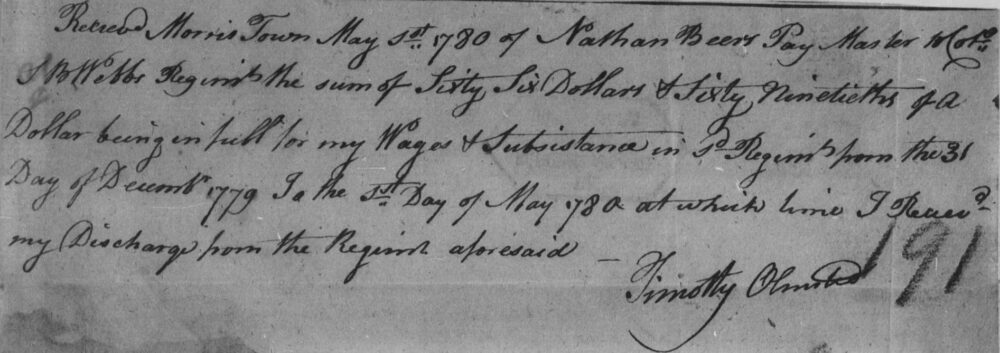 Receevd Morris Town May 1st 1780 of Nathan Beers Pay Master to Colo
S B Webbs Regimt the sum of Sixty Six Dollars & Sixty Ninetieths of A
Dollar being in full for my Wages & Subsistance in sd Regimt from the 31
Day of Decembr 1779 To the 1st Day of May 1780 at which time I Receevd
my Discharge from the Regimt aforesaid –
Timothy Olmsted
191